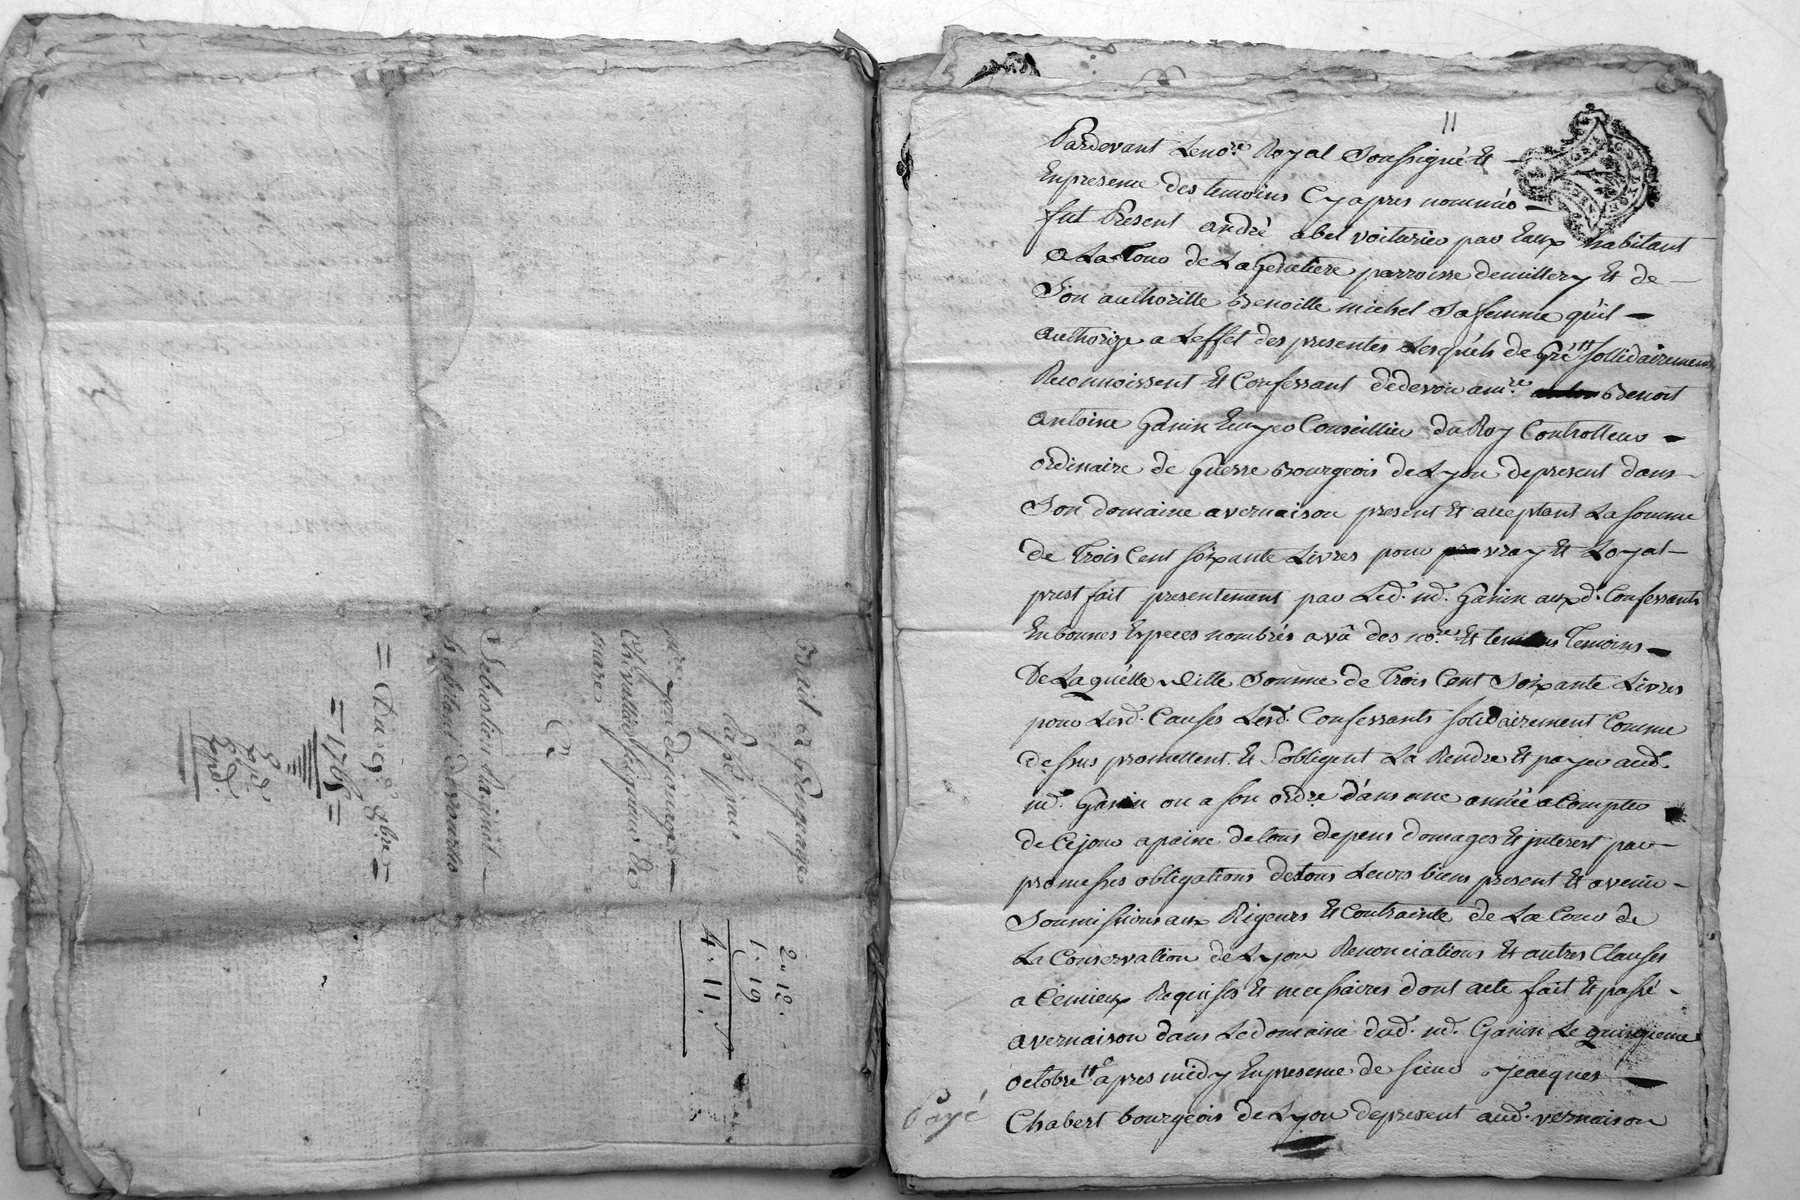 Bail en grangeage
la ste. jeune
Sebastien Raginot
habitant de vourles
= Du 19e. 8bre =
= 1765 =
Exp.d
2 " 12.
1 : 19
4 . 11.
11
Pardevant Le nore. Royal Soussigné Et
En presence des temoins Cyapres nommés
fut Present andré abel voiturier par Eaux habitant
a La Tour de La Gerletiere parroisse demillery Et de
Son authoritté Benoitte michel Sa femme qu'il
authorize a Leffet des presentes Lesquéls de Gré " sollidairement
Reconnoissent Et Confessant de devoir a mre. Benoit
antoine Ganin Ecuyer Conseillier du Roy Controlleur
ordinaire de Guerre Bourgeois de Lyon depresent dans
Son domaine a vernaison present Et acceptant La somme
de Trois Cent soixante Livres pour vray Et Loyal
prest fait presentement par Led. md. Ganin aux d. Confessants
En bonnes Especes nombrés a vû des nore. Et Temoins
De Laquélle ditte Somme de Trois Cent Soixante Livres
pour Lesd. Causes Lesd. Confessants solidairement Comme
dessus promettent Et S'obligent La Rendre Et payer aud.
md. Ganin ou a son ordre d'ans une année a Compter
de Cejour a paine de tous depens domages Et jnterest par
promesses obligations de tous Leurs biens present Et avenir
Soumissions aux Rigeurs Et Contrainte de La Cour de
La Conservation de Lyon Renonciations Et autres Clauses
a Cemieux Requises Et necessaires dont acte fait Et passé
a vernaison dans Le domaine dud. md. Ganin Le quinzieme
octobre " apres midy En presence de sieur Jeacques
Chabert bourgeois de Lyon depresent aud. vernaison
Payé